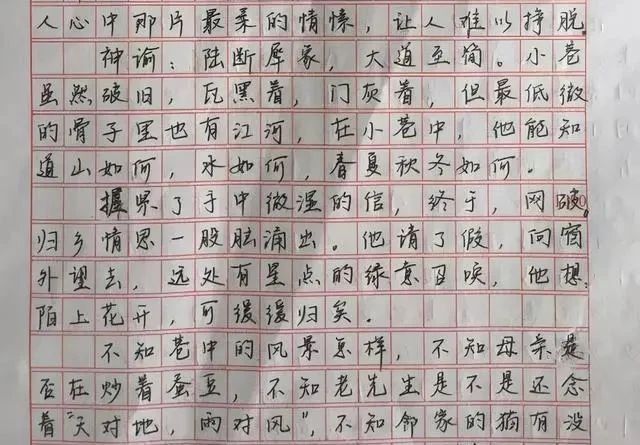 人心中那片最柔的情愫，让人难以挣脱。
神谕：陆断犀象，大道至简。小巷
虽然破旧，瓦黑着，门灰着，但最低微
的骨子里也有江河，在小巷中，他能知
道山如何，水如何，春夏秋冬如何。
握紧了手中微湿的信，终于，网破。
归乡情思一股脑涌出。他请了假，向窗
外望去，远处有星点的绿意召唤，他想，
陌上花开，可缓缓归矣。
不知巷中的风景怎样，不知母亲是
否在炒着蚕豆，不知老先生是不是还念
着“天对地，雨对风”，不知邻家的猫有没